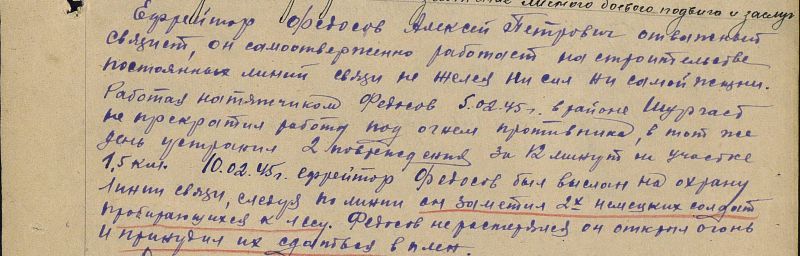 личного боевого подвига и заслуг
Ефрейтор Федосов Алексей Петрович отважный
связист, он самоотверженно работает на строительстве
постоянных линий связи не желея ни сил ни самой жизни.
Работая натяжчиком Федосов 5.02.45г. в районе Шургаст
не прекратил работу под огнем противника, в тот же
день устранил 2 повреждения за 12 минут на участке
1,5 клм. 10.02.45г. ефрейтор Федосов был выслан на охрану
линии связи, следуя по линии он заметил 2х немецких солдат
пробирающихся к лесу. Федосов не растерялся он открыл огонь
и принудил их сдаться в плен.